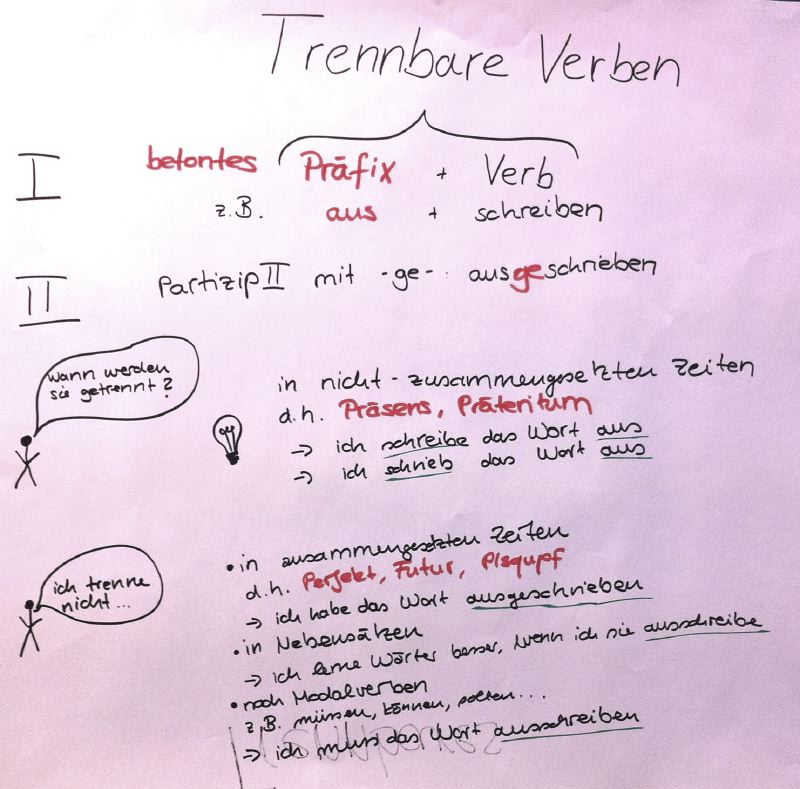 Trennbare Verben
I betontes Präfix + Verb
z.B. aus + schreiben
II Partizip II mit -ge- ausgeschrieben
wann werden
sie getrennt?
in nicht-zusammengesetzten Zeiten
d.h. Präsens, Präteritum
→ ich schreibe das Wort aus
→ ich schrieb das Wort aus
ich trenne
nicht...
• in zusammengesetzten Zeiten
d.h. Perfekt, Futur, Plsqupf
→ ich habe das Wort ausgeschrieben
• in Nebensätzen
→ ich lerne Wörter besser, wenn ich sie ausschreibe
• nach Modalverben
z.B. müssen, können, sollen...
→ ich muss das Wort ausschreiben